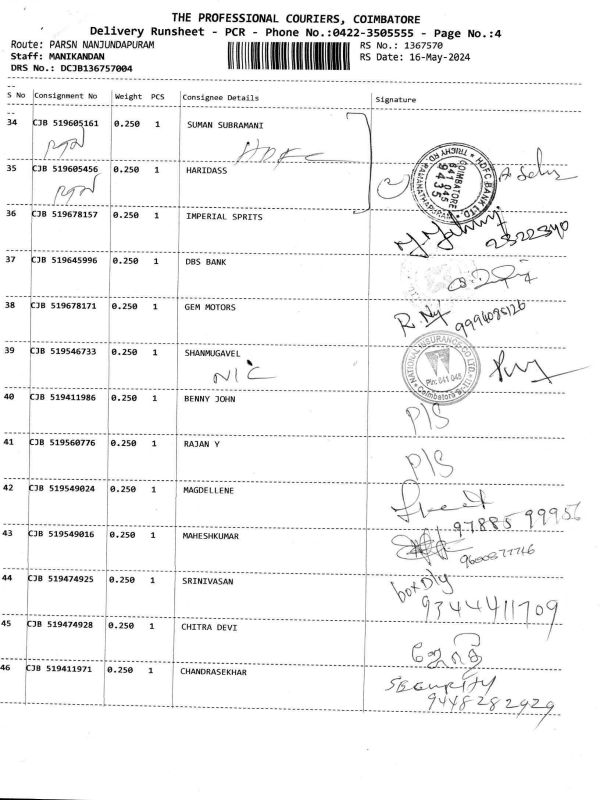 THE PROFESSIONAL COURIERS, COIMBATORE
Delivery Runsheet - PCR - Phone No.:0422-3505555 - Page No.:4
Route: PARSN NANJUNDAPURAM RS No.: 1367570
Staff: MANIKANDAN RS Date: 16-May-2024
DRS No.: DCJB136757004
S No Consignment No Weight PCS Consignee Details Signature
34 CJB 519605161 0.250 1 SUMAN SUBRAMANI
RTN HDFC
35 CJB 519605456 0.250 1 HARIDASS
RTN
HDFC BANK LTD. TRICHY RD RAMANATHAPURAM COIMBATORE 641 045 9435
36 CJB 519678157 0.250 1 IMPERIAL SPRITS
2322340
37 CJB 519645996 0.250 1 DBS BANK
38 CJB 519678171 0.250 1 GEM MOTORS
9994095126
39 CJB 519546733 0.250 1 SHANMUGAVEL
NIC
NATIONAL INSURANCE CO. LTD. Pin: 641 045 Coimbatore
40 CJB 519411986 0.250 1 BENNY JOHN
P/S
41 CJB 519560776 0.250 1 RAJAN Y
P/S
42 CJB 519549024 0.250 1 MAGDELLENE
97885 99956
43 CJB 519549016 0.250 1 MAHESHKUMAR
44 CJB 519474925 0.250 1 SRINIVASAN
box Dly
9344411709
45 CJB 519474928 0.250 1 CHITRA DEVI
46 CJB 519411971 0.250 1 CHANDRASEKHAR
SECURITY
9448282929